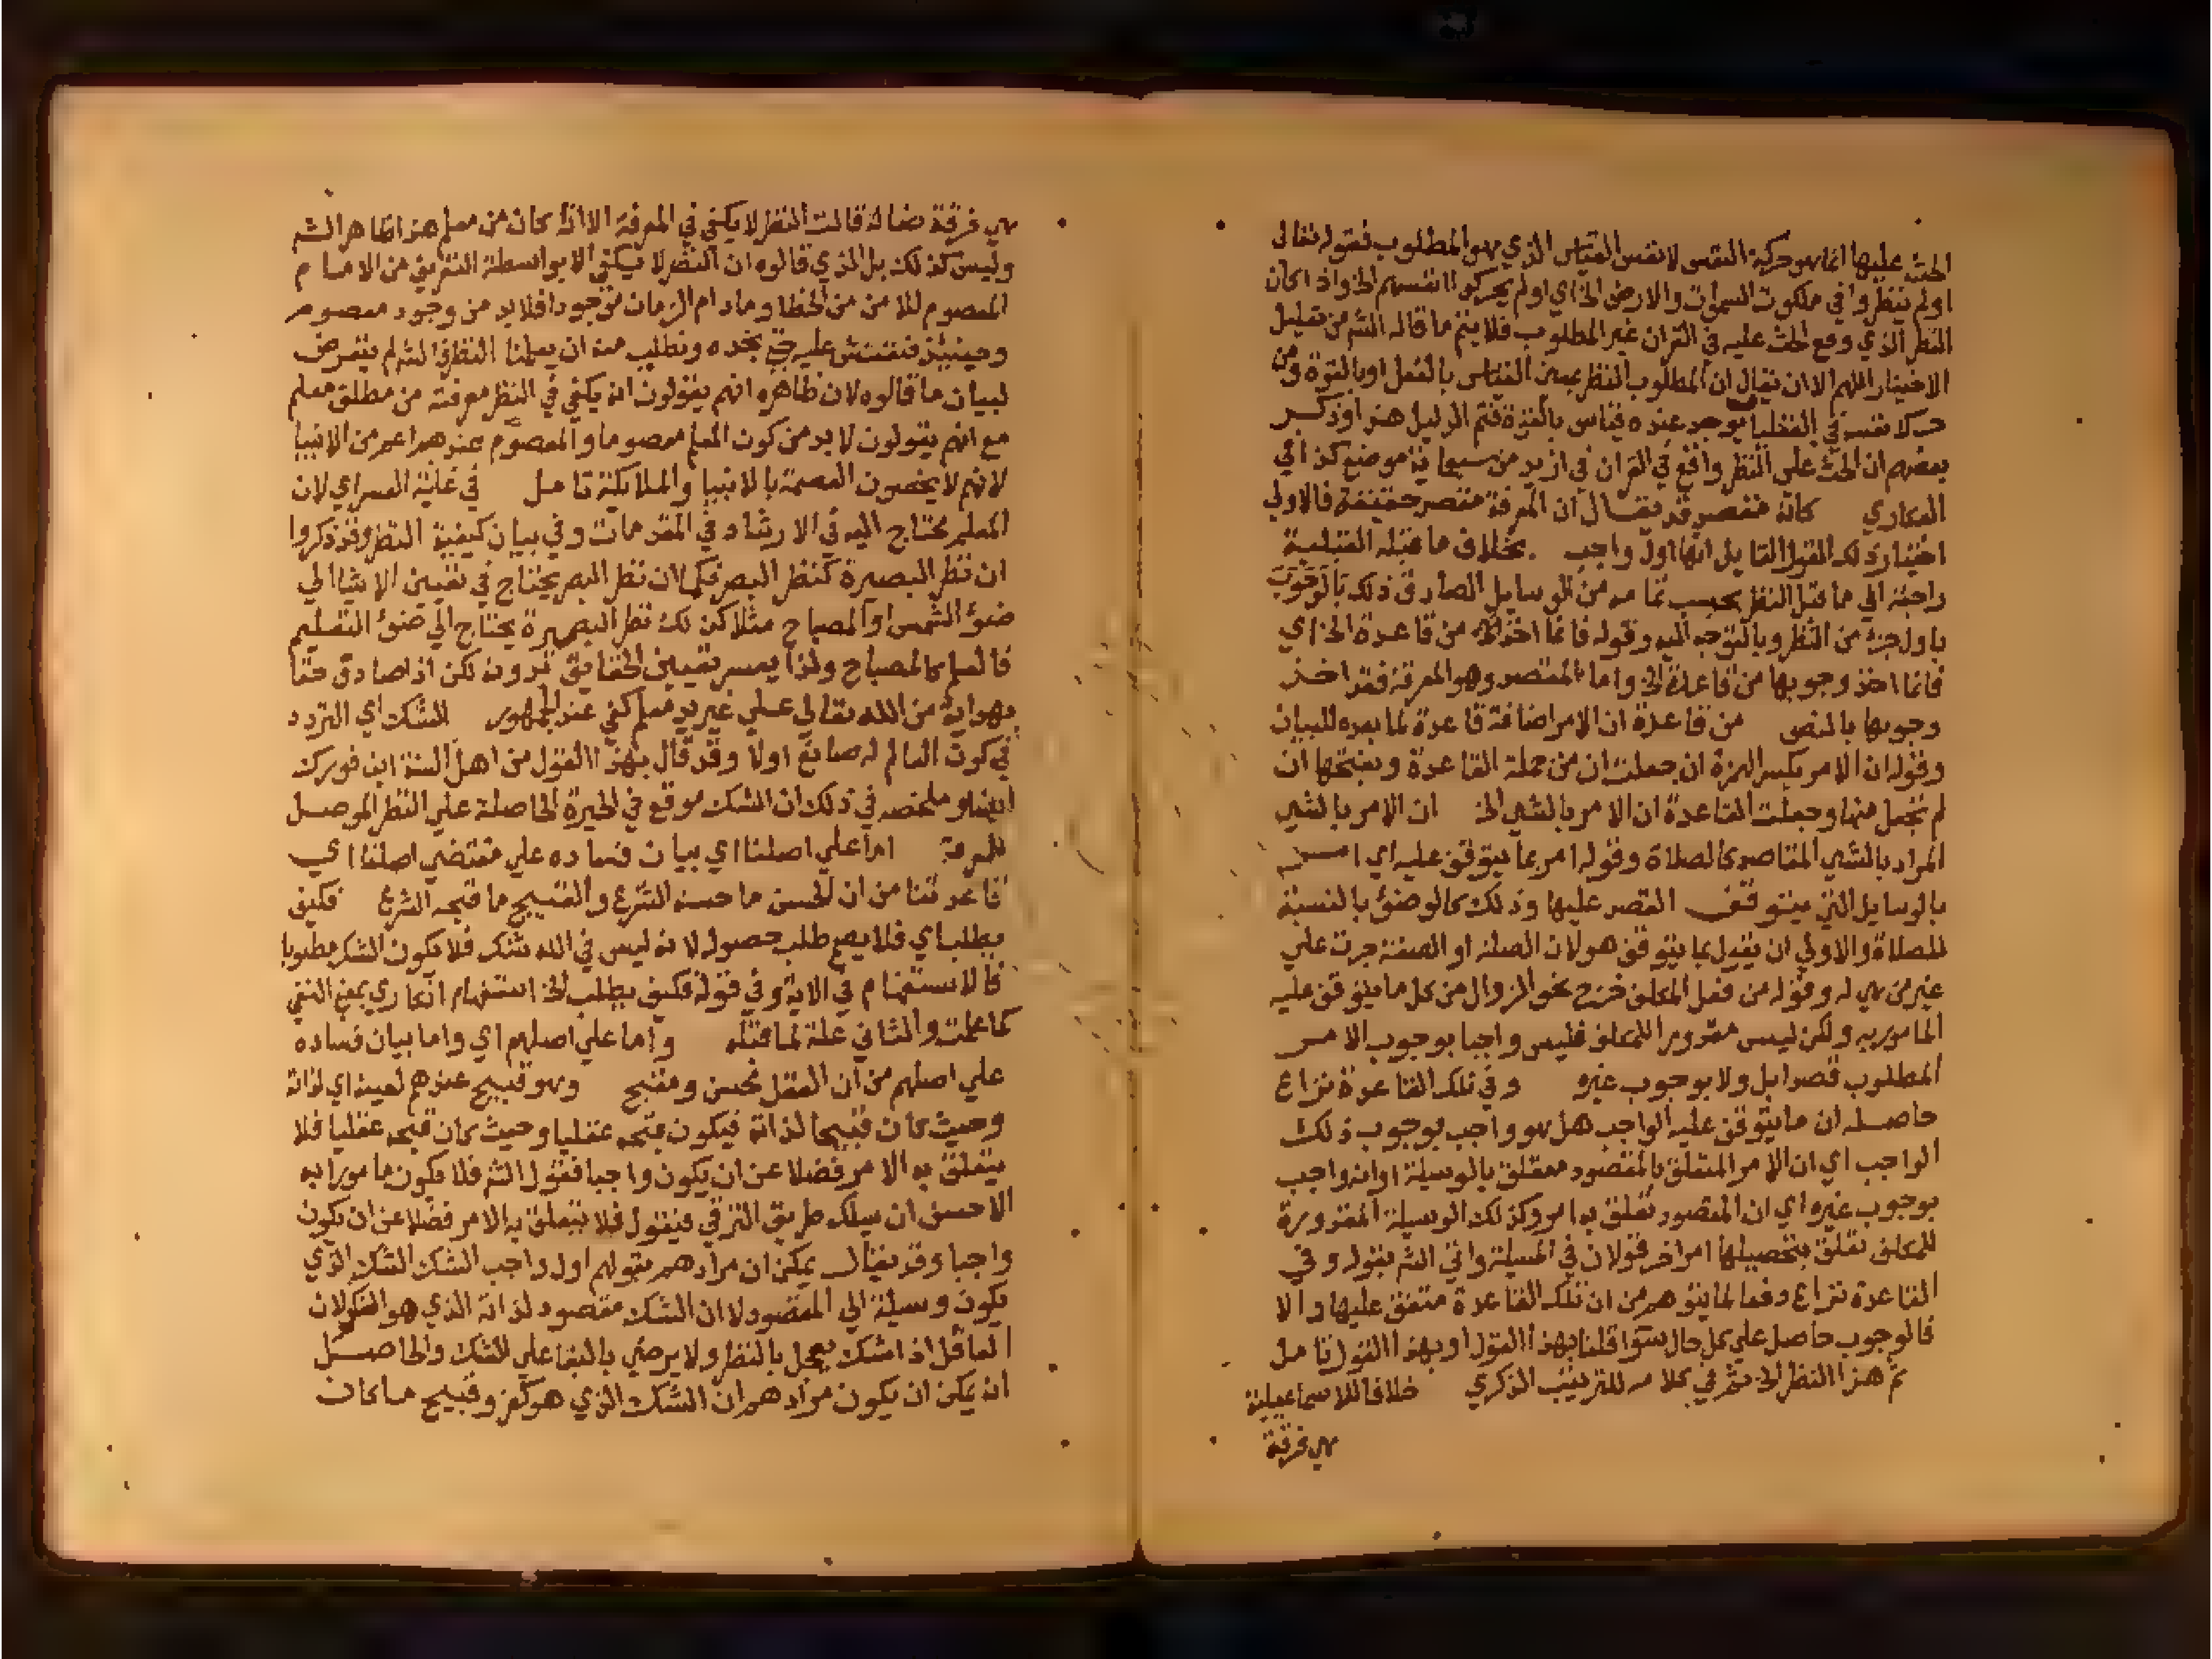 الحث عليها انما هو حركة النفس لا نفس القياس الذي هو المطلوب فقوله تعالى
اولم ينظروا في ملكوت السموات والارض الخ اي اولم يحركوا انفسهم الخ واذا كان
النظر الذي وقع الحث عليه في القران غير المطلوب فلا يتم ما قاله الشم من تعليل
الاختيار اللهم الا ان يقال ان المطلوب النظر بمعنى القياس بالفعل او بالقوة ومن
حرك نفسه في يوجد عنده قياس بالقوة فتم الدليل هذا وذكر
بعضهم ان الحث على النظر واقع في القران في ازيد من موضع كذا في
كانه مقصد قد يقال ان المعرفة مقصد حقيقة فالاولى
اختيار ذلك القول القايل انها اول واجب بخلاف ما قبله القبلية
راجعة الي ما قبل النظر بحسب تمامه من الوسايل الصادق ذلك بالوجوب
باول جزء من النظر وبالتوجه اليه وقوله فانما اخذ من قاعدة الخ اي
فانما اخذ وجوبها من قاعدة الخ واما المقصد وهو المعرفة فقد اخذ
وجوبها بالنص من قاعدة ان الامر اضافة قاعدة لما بعده للبيان
وقوله ان الامر بكسر الهمزة ان جعلت ان من جملة القاعدة وبفتحها ان
لم تجعل منها وجعلت القاعدة ان الامر بالشي الخ ان الامر بالشي
المراد بالشي المقاصد كالصلاة وقوله امر بما يتوقف عليه اي امر
بالوسايل التي يتوقف القصد عليها وذلك كالوضوء بالنسبة
للصلاة والاولى ان يقول بما يتوقف هو لان الصلة او الصفة جرت علي
غير من هي له وقوله من فعل المكلف خرج نحو الزوال من كل ما يتوقف عليه
المامور به ولكن ليس مقدورا للمكلف فليس واجبا بوجوب الامر
المطلوب قصدا بل ولا بوجوب غيره وفي تلك القاعدة نزاع
حاصله ان ما يتوقف عليه الواجب هل هو واجب بوجوب ذلك
الواجب اي ان الامر المتعلق بالمقصود متعلق بالوسيلة او انه واجب
بوجوب غيره اي ان المقصود تعلق به امر وكذلك الوسيلة المقدورة
للمكلف تعلق بتحصيلها امر اخر قولان في المسيلة واتي الشم بقوله وفي
القاعدة نزاع دفعا لما يتوهم من ان تلك القاعدة متفق عليها والا
فالوجوب حاصل علي كل حال سوا قلنا بهذا القول او بهذا القول تامل
ثم هذا النظر الخ ثم في كلامه للترتيب الذكري خلافا للاسماعيلية
هي فرقة
هي فرقة ضالة قالت النظر لا يكفي في المعرفة الا اذا كان من معلم هذا ظاهر الشم
وليس كذلك بل الذي قالوه ان النظر لا يكفي الا بواسطة التعريف من الامام
المعصوم للامن من الخطا وما دام الزمان موجودا فلا بد من وجود معصوم
وحينيذ فنفتش عليه حتى نجده ونطلب منه ان يعلمنا النظر الشم لم يتعرض
لبيان ما قالوه لان ظاهره انهم يقولون انه يكفي في النظر معرفته من مطلق معلم
مع انهم يقولون لا بد من كون المعلم معصوما والمعصوم عندهم اعم من الانبيا
لانهم لا يخصون العصمة بالانبيا والملايكة تامل في غاية العسر اي لان
المعلم يحتاج اليه في الارشاد في المقدمات وفي بيان كيفية النظر وقد ذكروا
ان نظر البصيرة كنظر البصر فكما ان نظر البصر يحتاج في تعيين الاشيا الي
ضوء الشمس او المصباح مثلا كذلك نظر البصيرة يحتاج الي ضوء التعليم
فالمعلم كالمصباح ولذا يعسر تعيين الحقايق بدونه لكن اذا صادف حقا
بهداية من الله تعالي علي غير يد معلم كفي عند الجمهور الشك اي التردد
في كون العالم له صانع اولا وقد قال بهذا القول من اهل السنة ابن فورك
ايضا وملخصه في ذلك ان الشك موقع في الحيرة الحاصلة علي النظر الموصل
للمعرفة اما علي اصلنا اي بيان فساده علي مقتضي اصلنا اي
قاعدتنا من ان الحسن ما حسنه الشرع والقبيح ما قبحه الشرع فكيف
يطلب اي فلا يصح طلب حصوله لانه ليس في الله شك فلا يكون الشك مطلوبا
فالاستفهام في الاية وفي قوله فكيف يطلب الخ استفهام انكاري بمعنى النفي
كما علمت والثاني علة لما قبله واما علي اصلهم اي واما بيان فساده
علي اصلهم من ان العقل محسن ومقبح وهو قبيح عندهم لعينه اي لذاته
وحيث كان قبيحا لذاته فيكون قبحه عقليا وحيث كان قبحه عقليا فلا
يتعلق به الامر فضلا عن ان يكون واجبا فقول الشم فلا يكون مامورا به
الاحسن ان يسلك طريق الترقي فيقول فلا يتعلق به الامر فضلا عن ان يكون
واجبا وقد يقال يمكن ان مرادهم بقولهم اول واجب الشك الشك الذي
يكون وسيلة الي المقصود لا ان الشك مقصود لذاته الذي هو لان
العاقل اذا شك يعجل بالنظر ولا يرضي بالبقا علي الشك والحاصل
انه يمكن ان يكون مرادهم ان الشك الذي هو كفر وقبيح ما كان